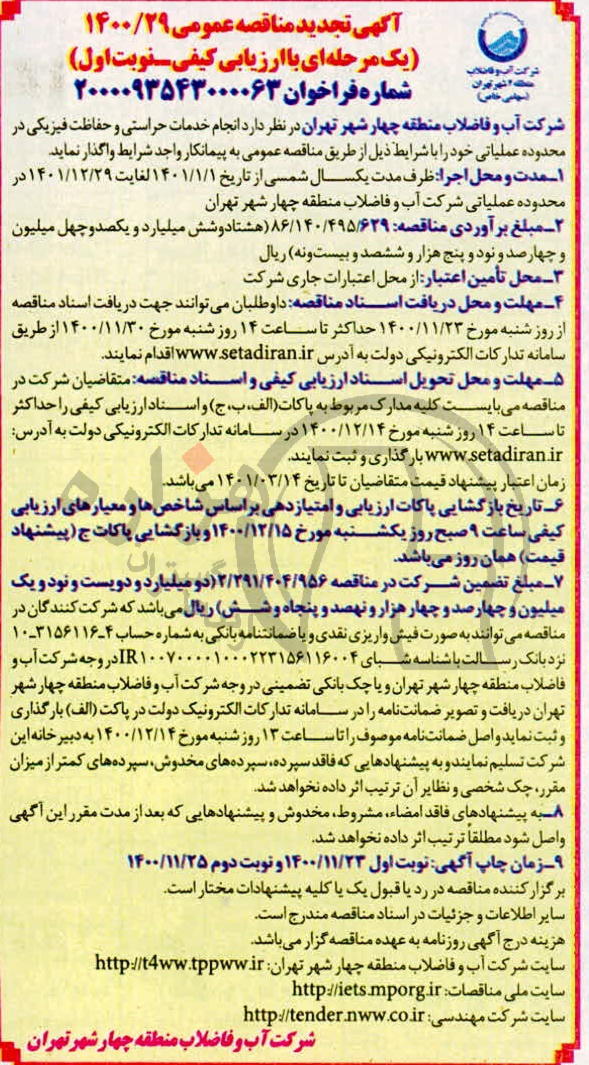 شرکت آب و فاضلاب
منطقه ۴ شهر تهران
(سهامی خاص)
آگهی تجدید مناقصه عمومی ۱۴۰۰/۲۹
(یک مرحله‌ای با ارزیابی کیفی ـ نوبت اول)
شماره فراخوان ۲۰۰۰۰۹۳۵۴۳۰۰۰۰۶۳
شرکت آب و فاضلاب منطقه چهار شهر تهران در نظر دارد انجام خدمات حراستی و حفاظت فیزیکی در
محدوده عملیاتی خود را با شرایط ذیل از طریق مناقصه عمومی به پیمانکار واجد شرایط واگذار نماید.
۱ـ مدت و محل اجرا: ظرف مدت یکسال شمسی از تاریخ ۱۴۰۱/۱/۱ لغایت ۱۴۰۱/۱۲/۲۹ در
محدوده عملیاتی شرکت آب و فاضلاب منطقه چهار شهر تهران
۲ـ مبلغ برآوردی مناقصه: ۸۶/۱۴۰/۴۹۵/۶۲۹ (هشتادوشش میلیارد و یکصدوچهل میلیون
و چهارصد و نود و پنج هزار و ششصد و بیست‌ونه) ریال
۳ـ محل تأمین اعتبار: از محل اعتبارات جاری شرکت
۴ـ مهلت و محل دریافت اسناد مناقصه: داوطلبان می‌توانند جهت دریافت اسناد مناقصه
از روز شنبه مورخ ۱۴۰۰/۱۱/۲۳ حداکثر تا ساعت ۱۴ روز شنبه مورخ ۱۴۰۰/۱۱/۳۰ از طریق
سامانه تدارکات الکترونیکی دولت به آدرس www.setadiran.ir اقدام نمایند.
۵ـ مهلت و محل تحویل اسناد ارزیابی کیفی و اسناد مناقصه: متقاضیان شرکت در
مناقصه می‌بایست کلیه مدارک مربوط به پاکات (الف، ب، ج) و اسناد ارزیابی کیفی را حداکثر
تا ساعت ۱۴ روز شنبه مورخ ۱۴۰۰/۱۲/۱۴ در سامانه تدارکات الکترونیکی دولت به آدرس:
www.setadiran.ir بارگذاری و ثبت نمایند.
زمان اعتبار پیشنهاد قیمت متقاضیان تا تاریخ ۱۴۰۱/۰۳/۱۴ می‌باشد.
۶ـ تاریخ بازگشایی پاکات ارزیابی و امتیازدهی بر اساس شاخص‌ها و معیارهای ارزیابی
کیفی ساعت ۹ صبح روز یکشنبه مورخ ۱۴۰۰/۱۲/۱۵ و بازگشایی پاکات ج (پیشنهاد
قیمت) همان روز می‌باشد.
۷ـ مبلغ تضمین شرکت در مناقصه ۲/۲۹۱/۴۰۴/۹۵۶ (دو میلیارد و دویست و نود و یک
میلیون و چهارصد و چهار هزار و نهصد و پنجاه و شش) ریال می‌باشد که شرکت کنندگان در
مناقصه می‌توانند به صورت فیش واریزی نقدی و یا ضمانتنامه بانکی به شماره حساب ۴ـ۳۱۵۶۱۱۶ـ۱۰
نزد بانک رسالت با شناسه شبای IR۱۰۰۷۰۰۰۰۱۰۰۰۲۲۳۱۵۶۱۱۶۰۰۴ در وجه شرکت آب و
فاضلاب منطقه چهار شهر تهران و یا چک بانکی تضمینی در وجه شرکت آب و فاضلاب منطقه چهار شهر
تهران دریافت و تصویر ضمانت‌نامه را در سامانه تدارکات الکترونیک دولت در پاکت (الف) بارگذاری
و ثبت نماید و اصل ضمانت‌نامه موصوف را تا ساعت ۱۳ روز شنبه مورخ ۱۴۰۰/۱۲/۱۴ به دبیرخانه این
شرکت تسلیم نمایند و به پیشنهادهایی که فاقد سپرده، سپرده‌های مخدوش، سپرده‌های کمتر از میزان
مقرر، چک شخصی و نظایر آن ترتیب اثر داده نخواهد شد.
۸ـ به پیشنهادهای فاقد امضاء، مشروط، مخدوش و پیشنهادهایی که بعد از مدت مقرر این آگهی
واصل شود مطلقاً ترتیب اثر داده نخواهد شد.
۹ـ زمان چاپ آگهی: نوبت اول ۱۴۰۰/۱۱/۲۳ و نوبت دوم ۱۴۰۰/۱۱/۲۵
برگزار کننده مناقصه در رد یا قبول یک یا کلیه پیشنهادات مختار است.
سایر اطلاعات و جزئیات در اسناد مناقصه مندرج است.
هزینه درج آگهی روزنامه به عهده مناقصه‌گزار می‌باشد.
سایت شرکت آب و فاضلاب منطقه چهار شهر تهران: http://t4ww.tppww.ir
سایت ملی مناقصات: http://iets.mporg.ir
سایت شرکت مهندسی: http://tender.nww.co.ir
شرکت آب و فاضلاب منطقه چهار شهر تهران